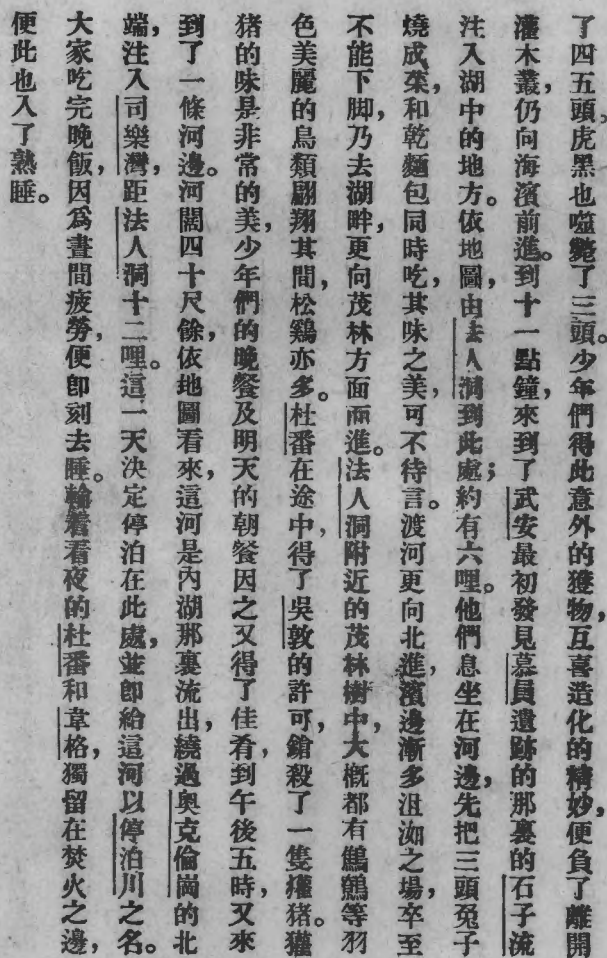 了四五頭。虎黑也噬斃了三頭。少年們得此意外的獲物，互喜造化的精妙，便負了離開
灌木叢，仍向海濱前進。到十一點鐘，來到了武安最初發見慕員遺跡的那裏的石子流
注入湖中的地方。依地圖，由法人洞到此處；約有六哩。他們息坐在河邊，先把三頭兔子
燒成炙，和乾麵包同時吃，其味之美，可不待言。渡河更向北進，濱邊漸多沮洳之場，卒至
不能下脚，乃去湖畔，更向茂林方面而進。法人洞附近的茂林樹中，大概都有鷓鷯等羽
色美麗的鳥類翩翔其間，松鷄亦多。杜番在途中，得了吳敦的許可，鎗殺了一隻獾猪。獾
猪的味是非常的美，少年們的晚餐及明天的朝餐因之又得了佳肴，到午後五時，又來
到了一條河邊。河闊四十尺餘，依地圖看來，這河是內湖那裏流出，繞過奧克倫崗的北
端，注入司樂灣，距法人洞十二哩。這一天決定停泊在此處，並卽給這河以停泊川之名。
大家吃完晚飯，因爲晝間疲勞，便卽刻去睡。輪着看夜的杜番和韋格，獨留在焚火之邊，
便此也入了熟睡。